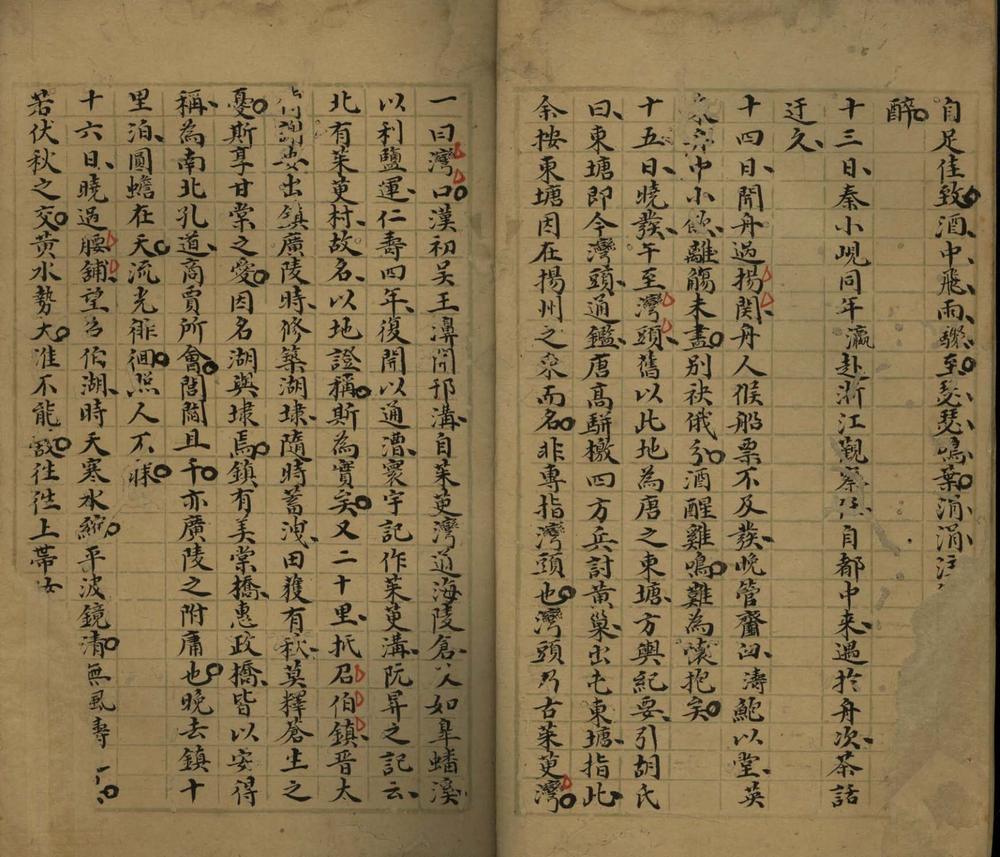 自足佳致酒中飛雨驟至瑟瑟鳴葉涓涓
醉
十三日秦小峴同年瀛赴浙江觀察任自都中来遇於舟次茶話
迂久
十四日開舟過揚関舟人候船票不及發晚管齋曲濤鮑以堂英
中小飲離觴未盡別袂俄分酒醒雞鳴難為懷抱矣
十五日曉發午至灣頭舊以此地為唐之東塘方輿紀要引胡氏
曰東塘即今灣頭通鑑唐高駢檄四方兵討黄巢出屯東塘指此
余按東塘因在揚州之東而名非專指灣頭也灣頭乃古茱萸灣
一曰灣口漢初吴王濞開邗溝自茱萸灣道海陵倉以人如皐蟠溪
以利鹽運仁壽四年復開以通漕寰宇記作茱萸溝阮昇之記云
北有茱萸村故名以地證稱斯為實矣又二十里抵召伯鎮晉太
謝安出鎮廣陵時修築湖埭隨時蓄洩田獲有秋莫釋蒼生之
憂斯享甘棠之愛因名湖與埭焉鎮有美棠橋惠政橋皆以安得
稱為南北孔道商賈所會閭閻且千亦廣陵之附庸也晚去鎮十
里泊圓蟾在天流光徘徊照人不寐
十六日曉過腰鋪望召伯湖時天寒水縮平波鏡清無風壽
若伏秋之交黄水勢大淮不能敵往往上蒂